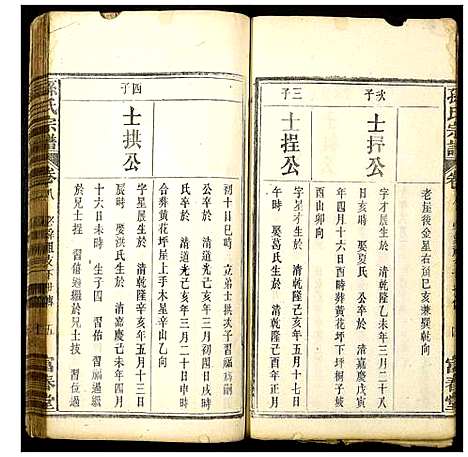 孫氏宗譜
卷
富春堂
老屋後金星右頭巳亥兼巽乾向
次子
士拝公
字才展生於 清乾隆乙未年三月二十八
日亥時 娶夏氏 公卒於 清嘉慶戊寅
年四月十六日酉時葬黃花坪下坪桐子坡
酉山卯向
三子
士捏公
字星才生於 清乾隆己亥年五月十三日
午時 娶葛氏生於 清乾隆 酉年正月
初十日巳時 立弟士拱次子習福爲嗣
公卒於 清道光己亥年三月初四日戌時
氏卒於 清道光己亥年三月二十日申時
合葬黃花坪屋上手小地名
四子
士拱公
字星展生於 清乾隆辛亥年五月十三日
辰時 娶洪氏生於 清嘉慶己未年四月
十六日未時 生子四 習伯 習福過繼
於兄士捏 習信過繼於兄士技 習
孫氏宗譜
卷八
五
富春堂